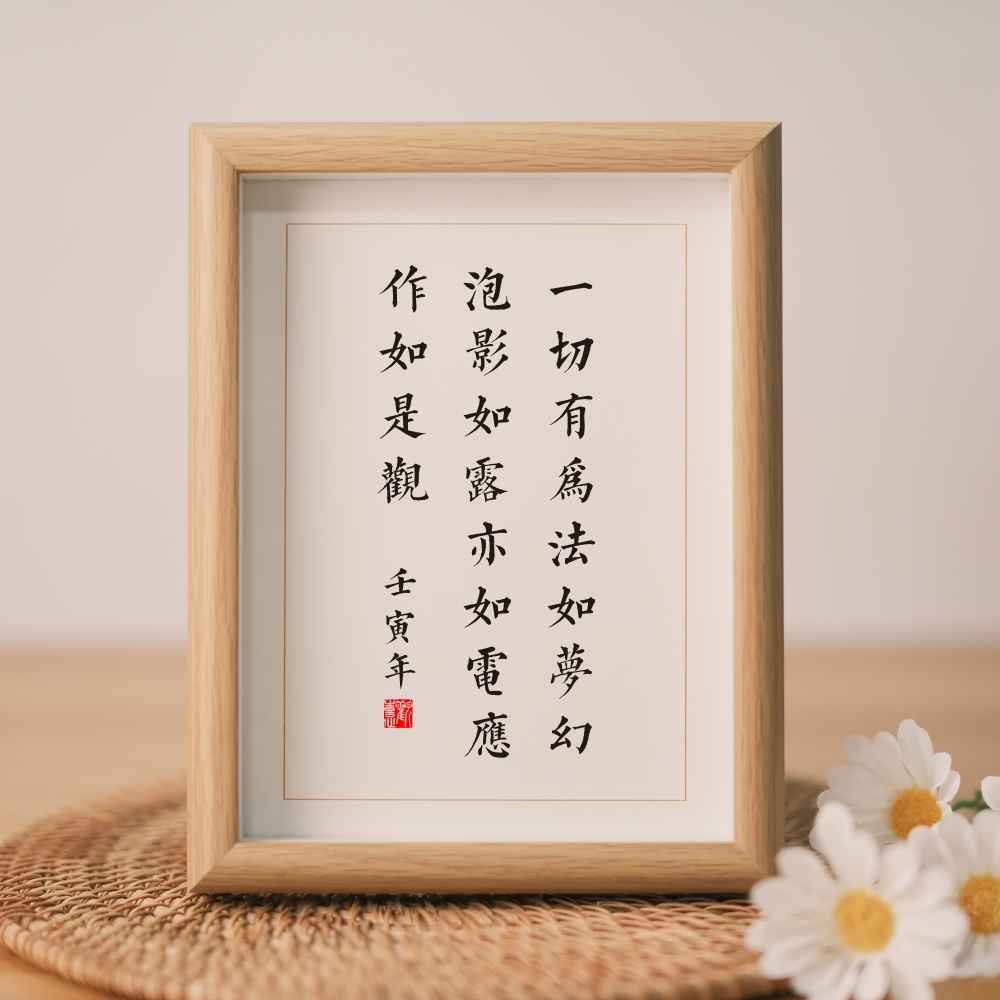 一切有爲法如夢幻
泡影如露亦如電應
作如是觀
壬寅年